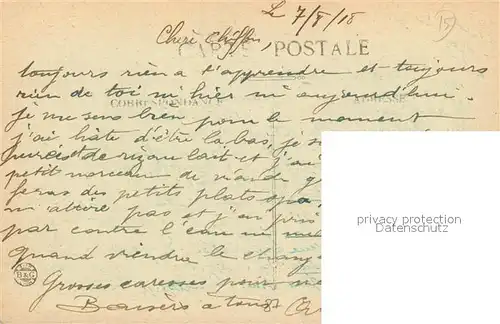 Le 7/8/18
15
Cheri Chiffon,
CARTE POSTALE
toujours rien a t'apprendre et toujours
rien de toi ni hier ni aujourd'hui.
CORRESPONDANCE ADRESSE
je me sens bien pour le moment
j'ai hâte d'être la bas, je
purées et de riz au lait et j'ai
petit morceau de viande
feras des petits plats
m'attire pas et j'en
par contre l'eau
quand viendra le
B&G
Grosses caresses pour
Baisers a tous
privacy protection
Datenschutz